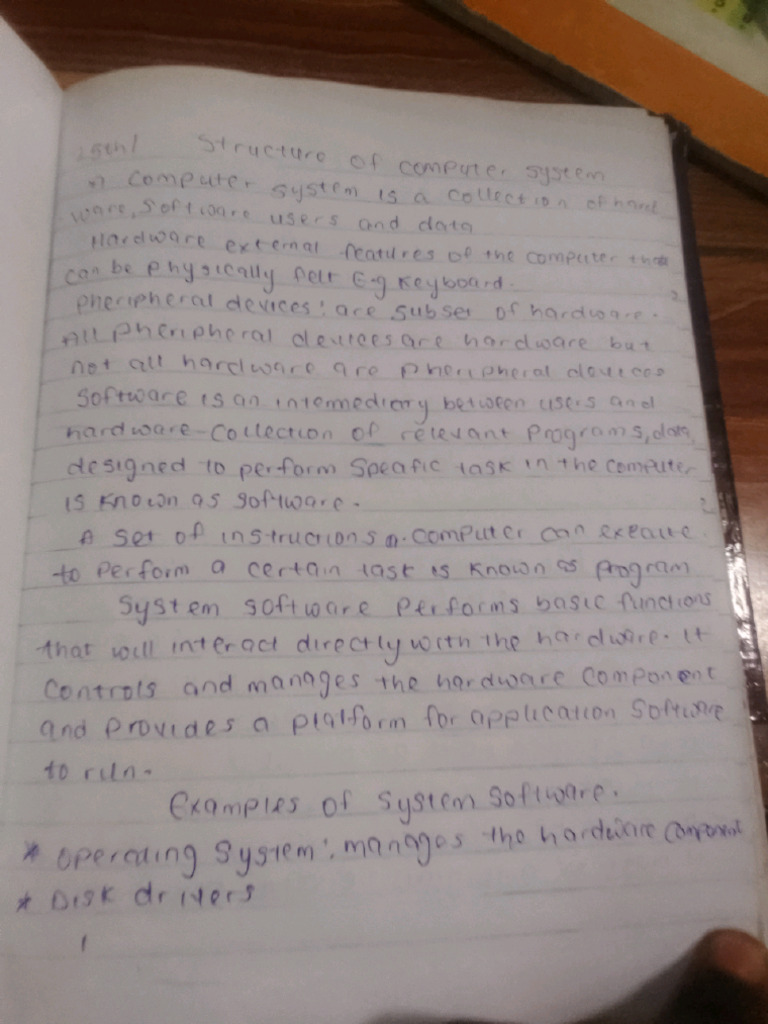 Structure of computer system
A computer system is a collection of hard
ware, software users and data
Hardware external features of the computer that
can be physically felt E-g Keyboard.
Pheripheral devices: are subset of hardware.
All Pheripheral devices are hardware but
not all hardware are Pheripheral devices
Software is an intermediary between users and
hardware-Collection of relevant Programs, data,
designed to perform Specific task in the computer
is known as software.
A set of instructions a computer can execute
to perform a certain task is known as program
System software Performs basic functions
that will interact directly with the hardware. It
controls and manages the hardware component
and provides a platform for application Software
to run.
Examples of System Software.
* Operating System: manages the hardware component
* Disk drivers